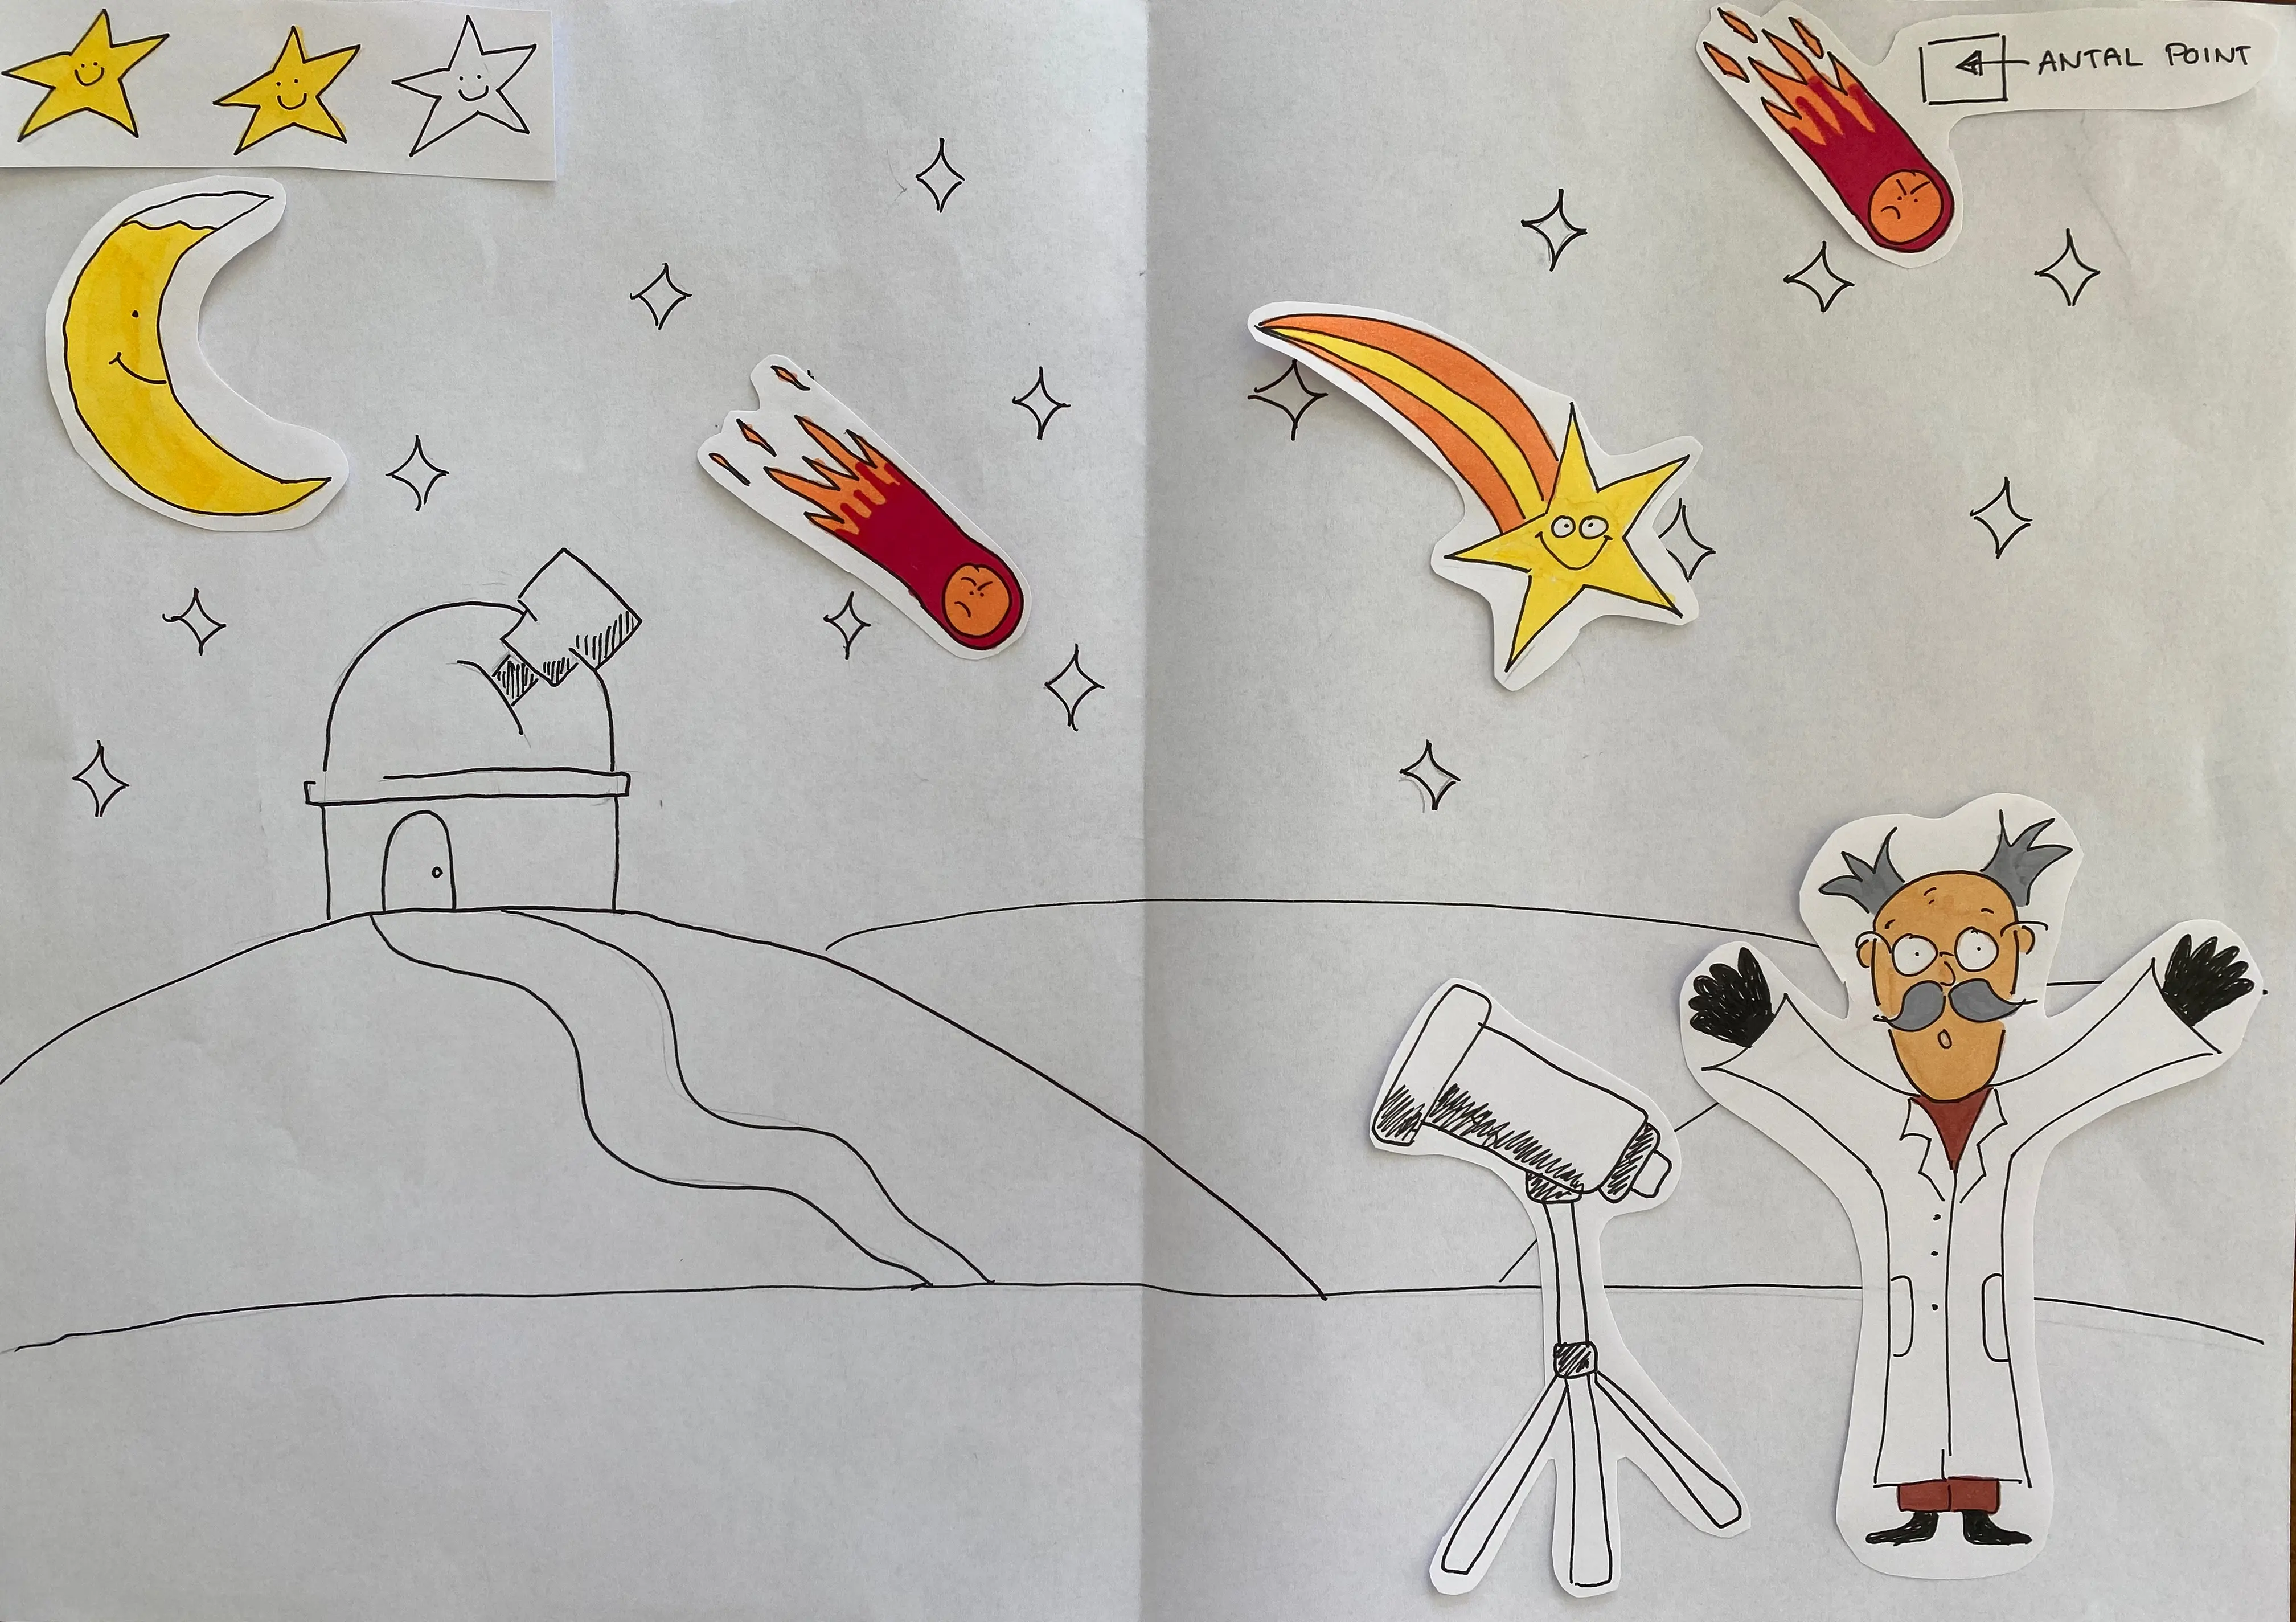 ANTAL POINT